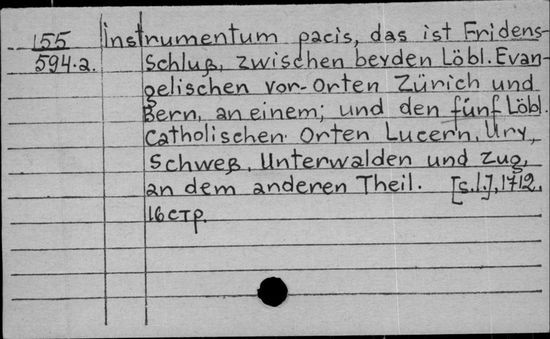 155 Instrumentum pacis, das ist Fridens-
594.a. Schluß, zwischen beyden Löbl. Evan-
gelischen vor-Orten Zürich und
Bern, an einem; und den fünf Löbl.
Catholischen Orten Lucern, Ury,
Schweß, Unterwalden und Zug,
an dem anderen Theil. [s.l.], 1712.
16 стр.